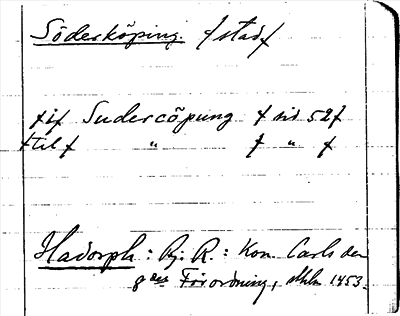 Söderköping. /stad/
/i/ Sudercöpung / sid 52/
/til/ " / " /
Hadorph: Bj. R.: Kon. Carls den
8de Förordning, Sthlm 1453.